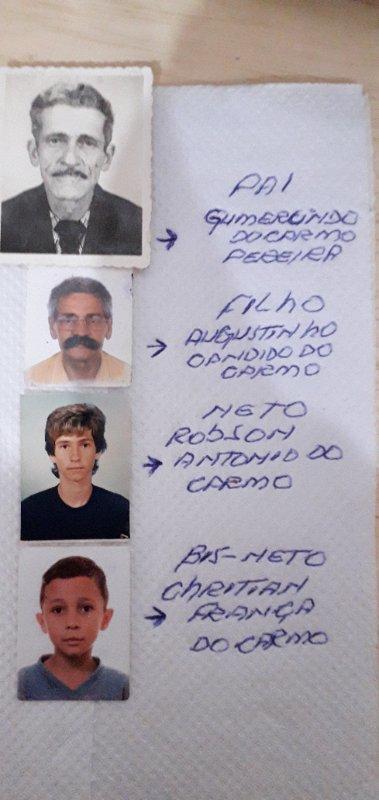 PAI
GUMERCINDO
DO CARMO
PEREIRA
FILHO
AUGUSTINHO
CANDIDO DO
CARMO
NETO
ROBSON
ANTONIO DO
CARMO
BIS-NETO
CHRITIAN
FRANÇA
DO CARMO